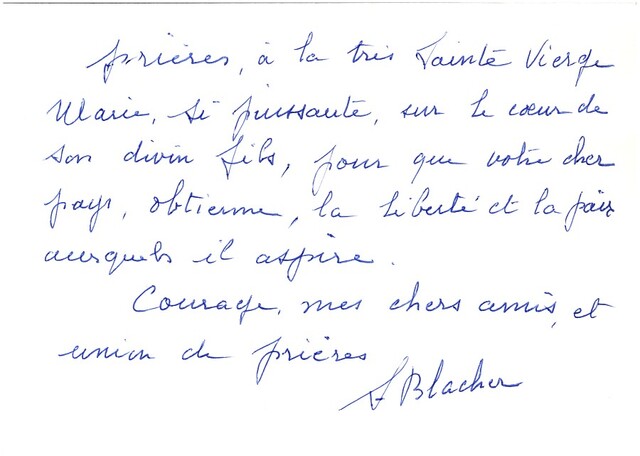 prières, à la très Sainte Vierge
Marie, si puissante, sur le cœur de
son divin fils, pour que votre cher
pays, obtienne, la liberté et la paix
auxquels il aspire.
Courage, mes chers amis, et
union de prières
S Blacher